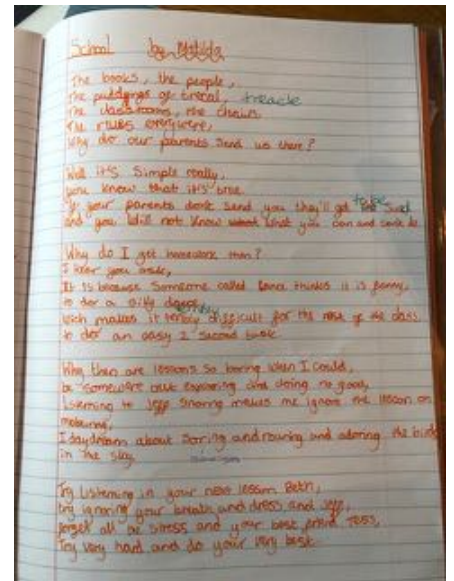 School by Matilda
The books, the people,
The puddings of treacal, treacle
The classrooms, the chairs
The rules everywere,
Why do our parents send us there?
Well it's simple really,
you know that it's true
If your parents don't send you they'll get to be sued
and you will not know what what you can and can't do
Why do I get homework then?
I hear you ask,
It is because someone called thinks it is funny
to der a silly
wich makes it difficult for the rest of the class
to der an easy 2 second task
Why then are lessons so boring when I could,
be somewere out exploring and doing no good,
Listerning to Jeff snoring makes me ignore the lesson on
I daydream about soring and and the birds
in the sky
Try Listerning in your next lesson Beth,
try ignoring your breath and dress and Jeff,
forget all the stress and your best friend Tess,
Try very hard and do your very best.